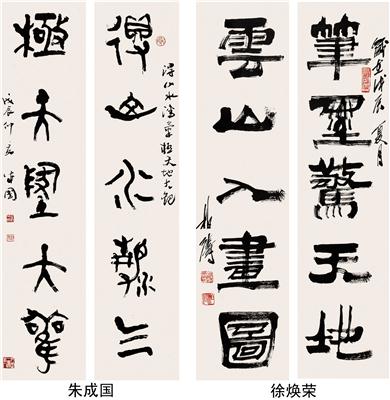 筆墨驚天地
歲在戊辰夏月
雲山入畫圖
得山水清气
得山水清氣極天地大觀
極天地大觀
戊辰仲夏成國
朱成国
徐焕荣